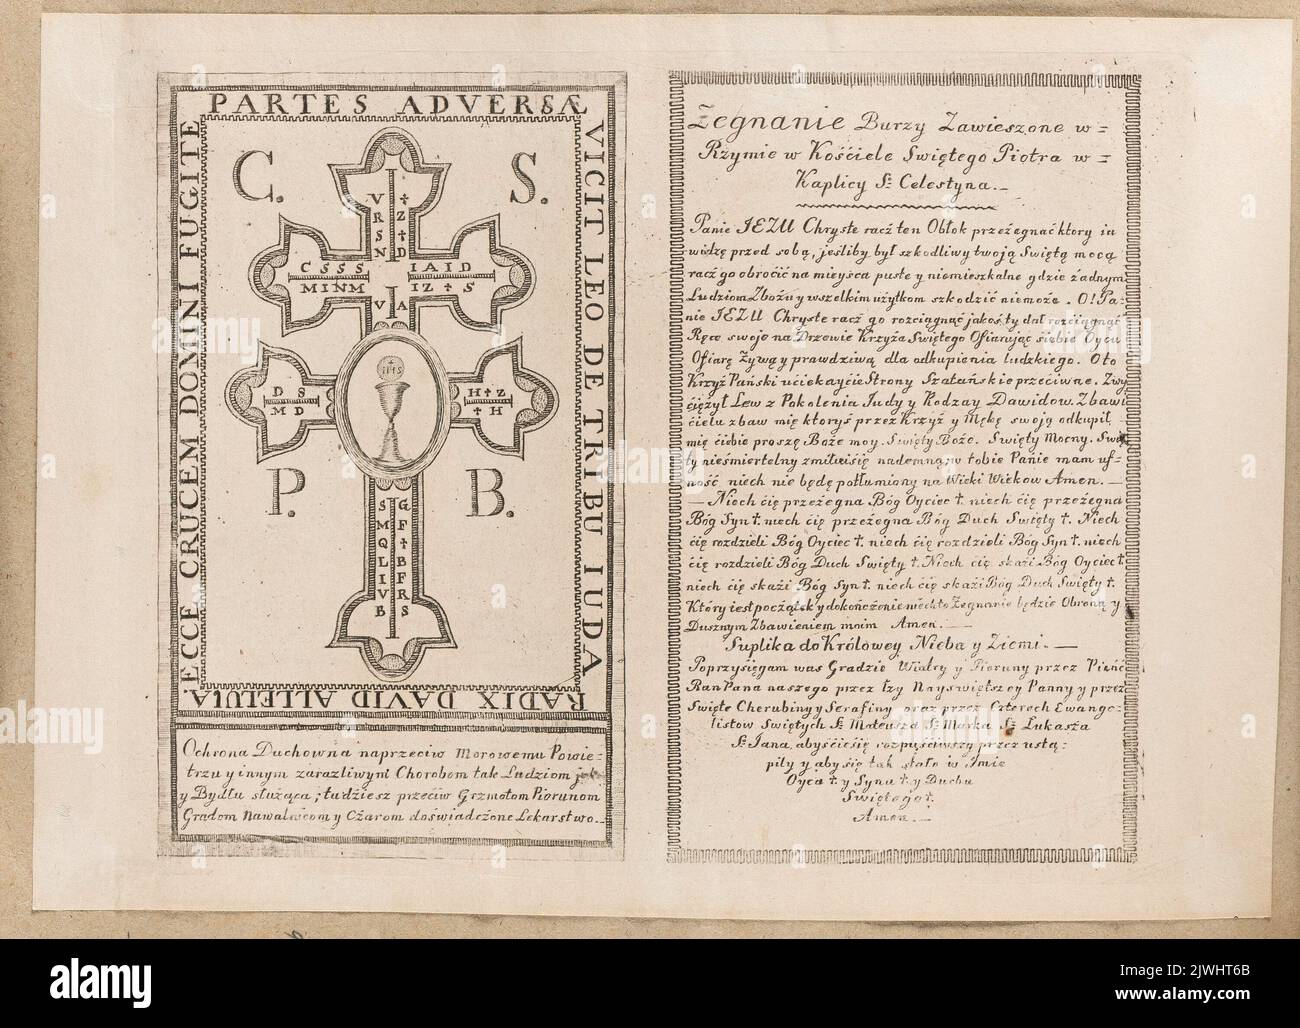 PARTES ADVERSÆ
VICIT LEO DE TRIBU IUDA
RADIX DAVID ALLELUIA.
ECCE CRUCEM DOMINI FUGITE
C. S.
V ‡
R Z
S ‡
N D
CSSS IAID
MINM IZ‡S
V A
IHS
DS H‡Z
MD ‡H
P. B.
S G
M F
Q ‡
L B
I F
V R
B S
Ochrona Duchowna naprzeciw Morowemu Powie-
trzu y innym zaraźliwym Chorobom tak Ludziom
y Bydłu służąca; tudziesz przećiw Grzmotom Piorunom
Gradom Nawałnicom y Czarom doświadczone Lekarstwo._
Żegnanie Burzy Zawieszone w=
Rzymie w Kośćiele Swiętego Piotra w=
Kaplicy S: Celestyna._
Panie JEZU Chryste racz ten Obłok przeżegnać ktory ia
widzę przed sobą, jeśliby był szkodliwy twoją Swiętą mocą
racz go obroćić na mieysca puste y niemieszkalne gdzie żadnym
Ludziom Zbożu y wszelkim użytkom szkodzić niemoże. O! Pa-
nie JEZU Chryste racz go rozciągnąć jakoś ty dał rozciągnąć
Ręce swoje na Drzewie Krzyża Swiętego Ofiarując siebie Oycu
Ofiarę Zywą y prawdziwą dla odkupienia ludzkiego. Oto
Krzyż Pański ućiekayćie Strony Szatańskie przećiwne. Zwy
ćiężył Lew z Pokolenia Judy y Rodzay Dawidow. Zbawi
ćielu zbaw mię ktoryś przez Krzyż y Mękę swoją odkupił
mię ćiebie proszę Boże moy. Swięty Boże. Swięty Mocny. Swię
ty nieśmiertelny zmiłuisię nademną, w tobie Panie mam uf-
ność niech nie będę potłumiony na Wieki Wiekow Amen._
_ Niech ćię przeżegna Bóg Oyciec †. niech ćię przeżegna
Bóg Syn †. niech ćię przeżegna Bóg Duch Swięty †. Niech
ćię rozdzieli Bóg Oyciec †. niech ćię rozdzieli Bóg Syn †. niech
ćię rozdzieli Bóg Duch Swięty †. Niech cię skaźi Bóg Oyciec †
niech ćię skaźi Bóg Syn †. niech ćię skaźi Bóg Duch Swięty †.
Który iest początek y dokończenie niech to Zegnanie będzie Obroną y
Dusznym Zbawieniem moim Amen._
Suplika do Królowey Nieba y Ziemi._
Poprzysięgam was Gradzie Wiatry y Pioruny przez Pięńć
Ran Pana naszego przez łzy Nayswiętszey Panny y przez
Swięte Cherubiny y Serafiny oraz przez Czterech Ewange-
listow Swiętych S: Mateusza S: Marka S: Lukasza
S: Jana, abyśćie się rozpuśćiwszy przez ustą-
piły y aby się tak stało w Jmie
Oyca †. y Syna †. y Ducha
Swiętego †.
Amen._
alamy
Image ID: 2JWHT6B
www.alamy.com